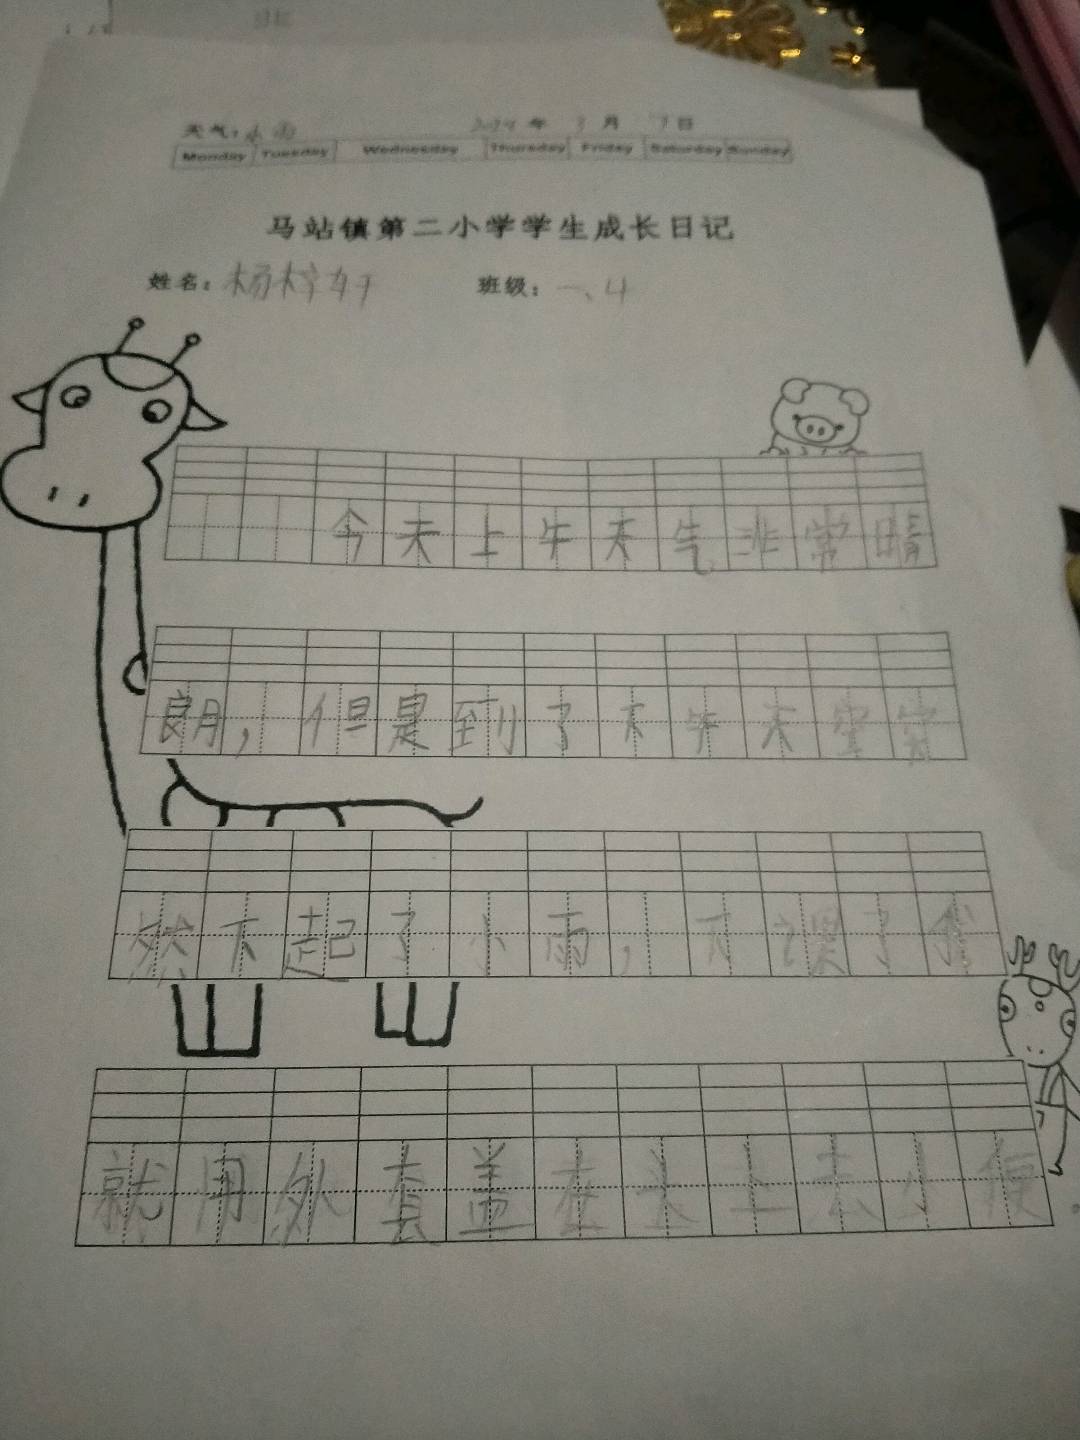 天气：小雨 年 3 月 7 日
Monday Tuesday Wednesday Thursday Friday Saturday Sunday
马站镇第二小学学生成长日记
姓名：杨梓妤 班级：一、4
今天上午天气非常晴
朗，但是到了下午天空突
然下起了小雨，下课了我
就用外套盖在头上去小便